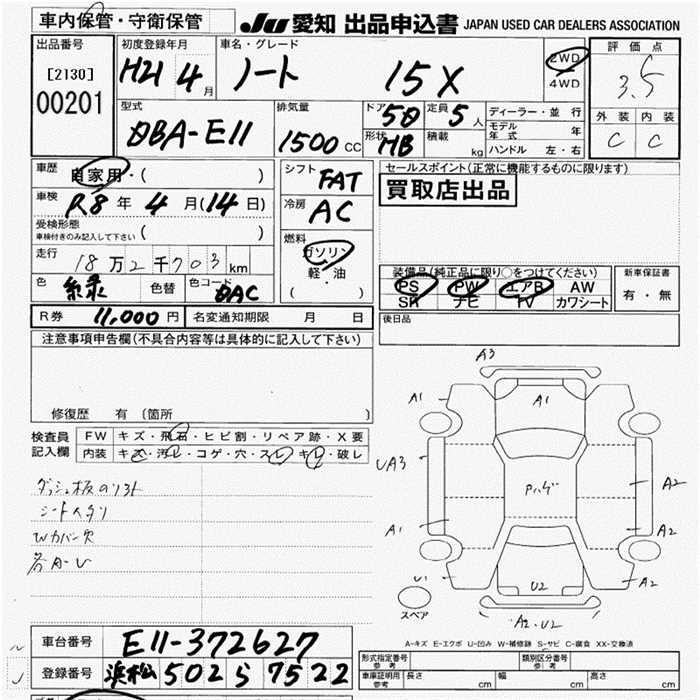 車内保管・守衛保管
JU 愛知 出品申込書 JAPAN USED CAR DEALERS ASSOCIATION
出品番号
[2130]
00201
初度登録年月
H21 4月
車名・グレード
ノート 15X
2WD
4WD
評価点
3.5
外装 内装
C C
型式
DBA-E11
排気量
1500 CC
ドア
5D
形状
HB
定員
5人
積載
kg
ディーラー・並行
モデル年式 年
ハンドル 左・右
車歴
自家用・( )
車検
R8年4月(14日)
受検形態
車検付きのみ記入して下さい ( )
走行
18万2千703km
色
緑
色替
色コード
DAC
シフト
FAT
冷房
AC
燃料
ガソリン
軽・油
( )
セールスポイント(正常に機能するものに限ります)
買取店出品
装備品(純正品に限り○をつけてください)
PS PW エアB AW
SR ナビ TV カワシート
新車保証書
有・無
R券 11,000円
名変通知期限 月 日
後日品
注意事項申告欄(不具合内容等は具体的に記入して下さい)
修復歴 有 (箇所 )
検査員
記入欄
FW キズ・飛石・ヒビ割・リペア跡・X要
内装 キズ・汚レ・コゲ・穴・スレ・キレ・破レ
ダッシュ板のリフト
シートスタリ
Wカバー欠
各A-U
A3
A1
A1
UA3
Pハゲ
A2
A1
A2
U1
U2
A2
A2・U2
スペア
A-キズ E-エクボ U-凹み W-補修跡 S-サビ C-腐食 XX-交換済
車台番号
E11-372627
登録番号
浜松 502 ら 7522
型式指定番号
参考
類別区分番号
参考
車庫証明用
参考
長さ cm
幅 cm
高さ cm